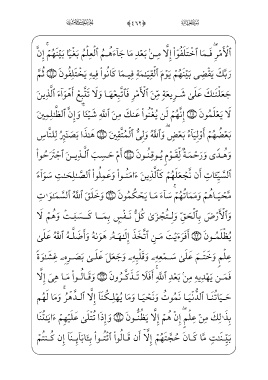 ٱلْأَمْرِ ۖ فَمَا ٱخْتَلَفُوٓا۟ إِلَّا مِنۢ بَعْدِ مَا جَآءَهُمُ ٱلْعِلْمُ بَغْيًۢا بَيْنَهُمْ ۚ إِنَّ
رَبَّكَ يَقْضِى بَيْنَهُمْ يَوْمَ ٱلْقِيَـٰمَةِ فِيمَا كَانُوا۟ فِيهِ يَخْتَلِفُونَ ۝ ثُمَّ
جَعَلْنَـٰكَ عَلَىٰ شَرِيعَةٍ مِّنَ ٱلْأَمْرِ فَٱتَّبِعْهَا وَلَا تَتَّبِعْ أَهْوَآءَ ٱلَّذِينَ
لَا يَعْلَمُونَ ۝ إِنَّهُمْ لَن يُغْنُوا۟ عَنكَ مِنَ ٱللَّهِ شَيْـًٔا ۚ وَإِنَّ ٱلظَّـٰلِمِينَ
بَعْضُهُمْ أَوْلِيَآءُ بَعْضٍ ۖ وَٱللَّهُ وَلِىُّ ٱلْمُتَّقِينَ ۝ هَـٰذَا بَصَـٰٓئِرُ لِلنَّاسِ
وَهُدًى وَرَحْمَةٌ لِّقَوْمٍ يُوقِنُونَ ۝ أَمْ حَسِبَ ٱلَّذِينَ ٱجْتَرَحُوا۟
ٱلسَّيِّـَٔاتِ أَن نَّجْعَلَهُمْ كَٱلَّذِينَ ءَامَنُوا۟ وَعَمِلُوا۟ ٱلصَّـٰلِحَـٰتِ سَوَآءً
مَّحْيَاهُمْ وَمَمَاتُهُمْ ۚ سَآءَ مَا يَحْكُمُونَ ۝ وَخَلَقَ ٱللَّهُ ٱلسَّمَـٰوَٰتِ
وَٱلْأَرْضَ بِٱلْحَقِّ وَلِتُجْزَىٰ كُلُّ نَفْسٍۭ بِمَا كَسَبَتْ وَهُمْ لَا
يُظْلَمُونَ ۝ أَفَرَءَيْتَ مَنِ ٱتَّخَذَ إِلَـٰهَهُۥ هَوَىٰهُ وَأَضَلَّهُ ٱللَّهُ عَلَىٰ
عِلْمٍ وَخَتَمَ عَلَىٰ سَمْعِهِۦ وَقَلْبِهِۦ وَجَعَلَ عَلَىٰ بَصَرِهِۦ غِشَـٰوَةً
فَمَن يَهْدِيهِ مِنۢ بَعْدِ ٱللَّهِ ۚ أَفَلَا تَذَكَّرُونَ ۝ وَقَالُوا۟ مَا هِىَ إِلَّا
حَيَاتُنَا ٱلدُّنْيَا نَمُوتُ وَنَحْيَا وَمَا يُهْلِكُنَآ إِلَّا ٱلدَّهْرُ ۚ وَمَا لَهُم
بِذَٰلِكَ مِنْ عِلْمٍ ۖ إِنْ هُمْ إِلَّا يَظُنُّونَ ۝ وَإِذَا تُتْلَىٰ عَلَيْهِمْ ءَايَـٰتُنَا
بَيِّنَـٰتٍ مَّا كَانَ حُجَّتَهُمْ إِلَّآ أَن قَالُوا۟ ٱئْتُوا۟ بِـَٔابَآئِنَآ إِن كُنتُمْ